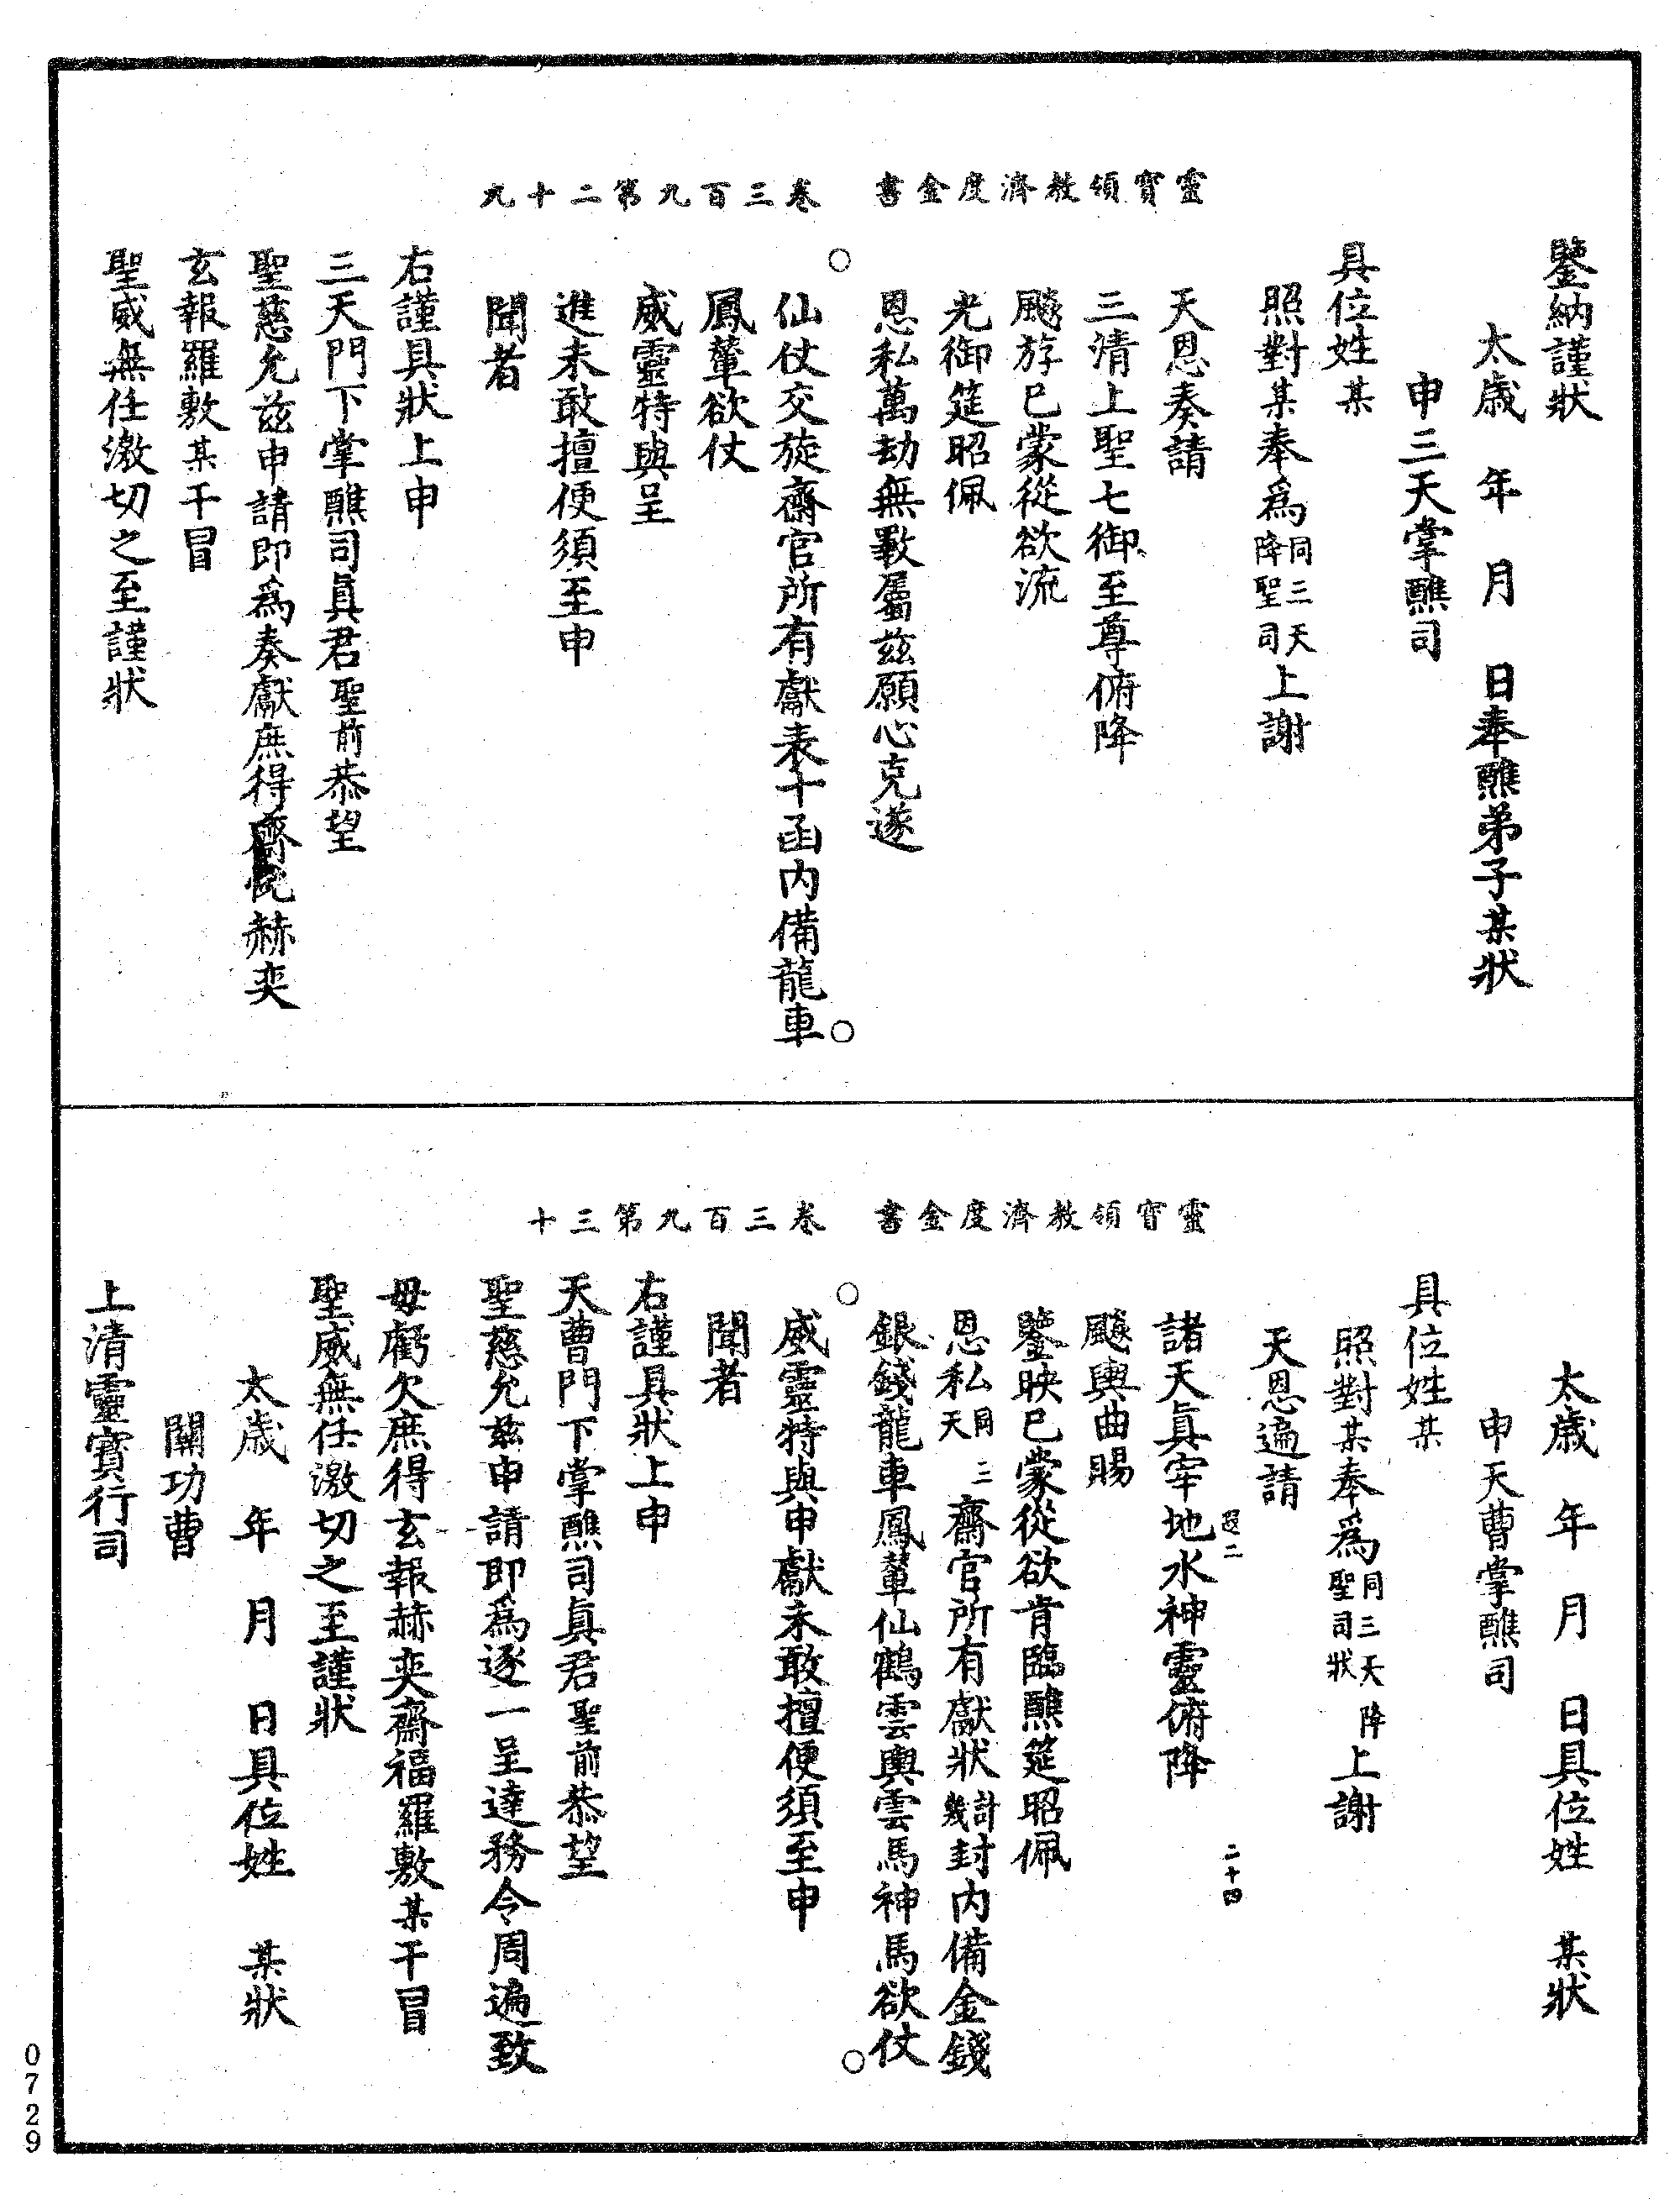 靈寶領教濟度金書　卷三百九第二十九
鑒納謹狀
太歲　年　月　日奉醮弟子某狀
申三天掌醮司
具位姓某
照對某奉爲同三天降聖司上謝
天恩奏請
三清上聖七御至尊俯降
飈斿已蒙從欲流
光御筵昭佩
恩私萬劫無斁屬茲願心克遂
仙仗交旋齋官所有獻表十函內備龍車
鳳輦欲仗
威靈特與呈
進未敢擅便須至申
聞者
右謹具狀上申
三天門下掌醮司眞君聖前恭望
聖慈允茲申請即爲奏獻庶得齋悰赫奕
玄報羅敷某干冒
聖威無任激切之至謹狀
靈寶領教濟度金書　卷三百九第三十
太歲　年　月　日具位姓　某狀
申天曹掌醮司
具位姓某
照對某奉爲同三天降聖司狀上謝
天恩遍請
諸天眞宰地水神靈俯降
二十四
飈輿曲賜
鑒映已蒙從欲肯臨醮筵昭佩
恩私同三天齋官所有獻狀計幾封內備金錢
銀錢龍車鳳輦仙鶴雲輿雲馬神馬欲仗
威靈特與申獻未敢擅便須至申
聞者
右謹具狀上申
天曹門下掌醮司眞君聖前恭望
聖慈允茲申請即爲逐一呈達務令周遍致
毋虧欠庶得玄報赫奕齋福羅敷某干冒
聖威無任激切之至謹狀
太歲　年　月　日具位姓　某狀
關功曹
上清靈寶行司
0729